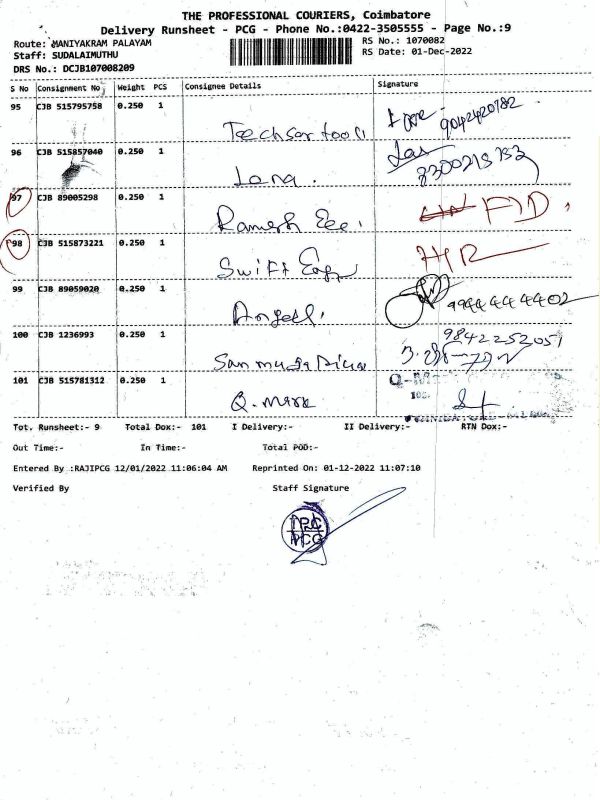 THE PROFESSIONAL COURIERS, Coimbatore
Delivery Runsheet - PCG - Phone No.:0422-3505555 - Page No.:9
Route: MANIYAKRAM PALAYAM
RS No.: 1070082
Staff: SUDALAIMUTHU
RS Date: 01-Dec-2022
DRS No.: DCJB107008209
S No Consignment No Weight PCS Consignee Details Signature
95 CJB 515795758 0.250 1 9042420782
96 CJB 515857040 0.250 1 8300213153
97 CJB 89005298 0.250 1 Ramesh
98 CJB 515873221 0.250 1 Swift Engg HR
99 CJB 89059020 0.250 1 9944444402
100 CJB 1236993 0.250 1 9842252051
101 CJB 515781312 0.250 1 Q. Mark
Tot. Runsheet:- 9 Total Dox:- 101 I Delivery:- II Delivery:- RTN Dox:-
Out Time:- In Time:- Total POD:-
Entered By :RAJIPCG 12/01/2022 11:06:04 AM Reprinted On: 01-12-2022 11:07:10
Verified By Staff Signature
PCG